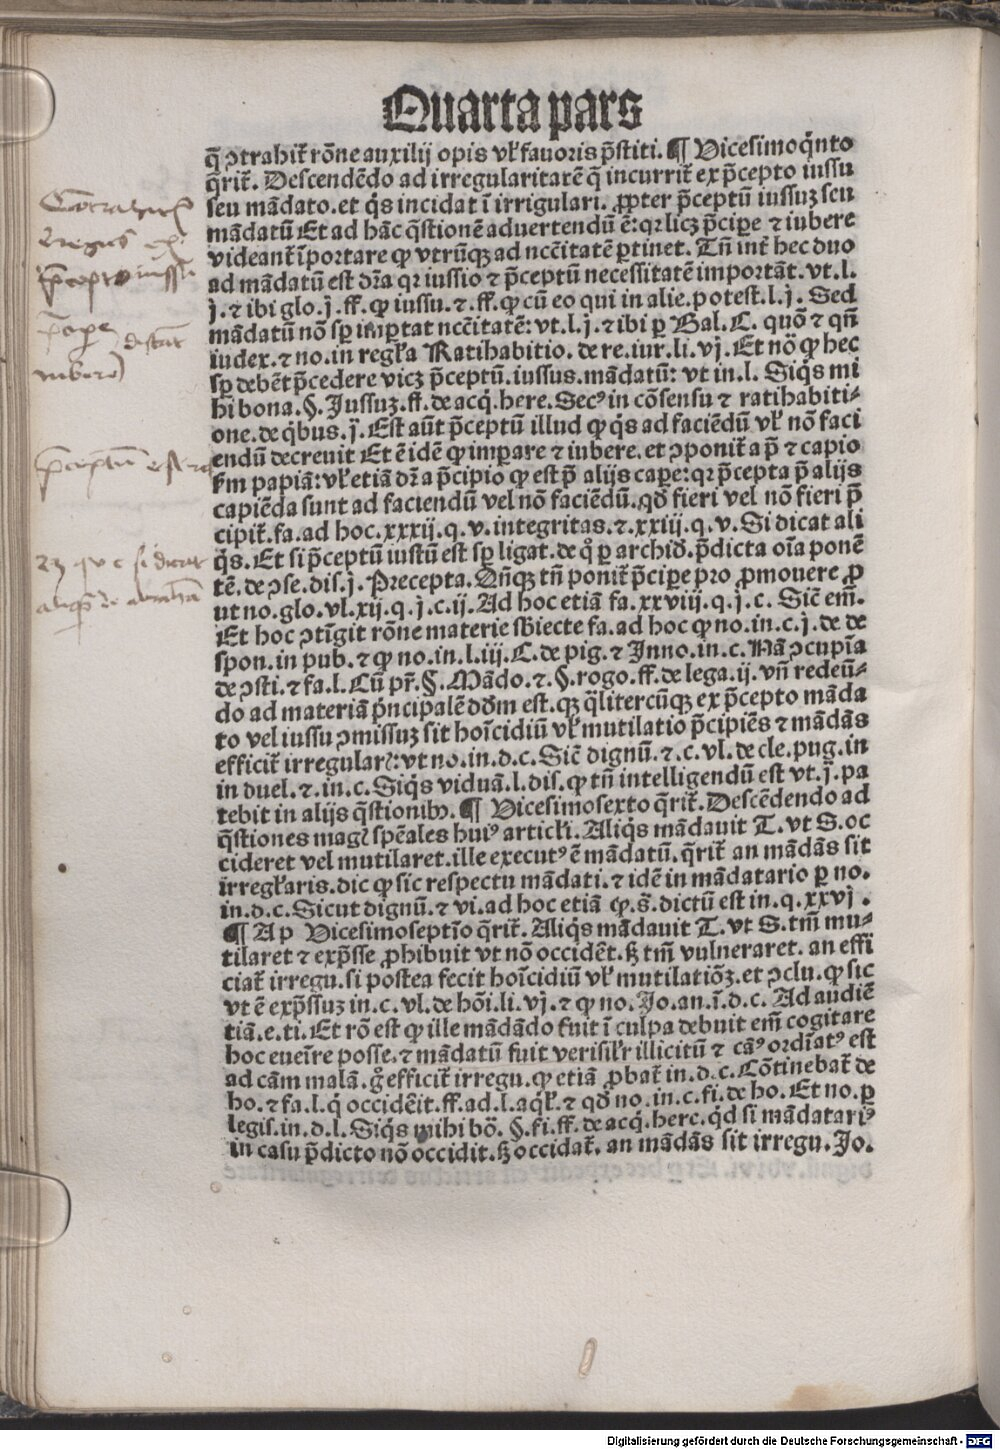 Quarta pars
q̄ ↄtrahit᷑ rōne auxilij opis vl̓ fauoris p̄stiti. ¶ Vicesimoq̇nto
q̄rit᷑. Descendēdo ad irregularitatē q̄ incurrit᷑ ex p̄cepto iussu
seu mādato. et q̇s incidat ī irrigulari. ꝓpter p̄ceptū iussuꝫ seu
mādatū Et ad hāc q̄stionē aduertendū ē: qꝛ licꝫ p̄cipe ⁊ iubere
videant᷑ īportare ꝙ vtrūqꝫ ad nccītatē ꝑtinet. Tn̄ int᷑ hec duo
ad mādatū est dr̄a qꝛ iussio ⁊ p̄ceptū necessitatē importāt. vt. l.
j. ⁊ ibi glo. j. ff. ꝙ iussu. ⁊ ff. ꝙ cū eo qui in alie. potest. l. j. Sed
mādatū nō sꝑ imꝑtat nccītatē: vt. l. j. ⁊ ibi ꝑ Bal. C. quō ⁊ qn̄
iudex. ⁊ no. in regl̓a Ratihabitio. de re. iur. li. vj. Et nō ꝙ hec
sꝑ debēt p̄cedere vicꝫ p̄ceptū. iussus. mādatū: vt in. l. Siq̇s mi
hi bona. §. Jussuꝫ. ff. de acq̇. here. Secꝰ in cōsensu ⁊ ratihabiti⸗
one. de q̇bus. j. Est aūt p̄ceptū illud ꝙ q̇s ad faciēdū vl̓ nō faci
endū decreuit Et ē idē ꝙ imꝑare ⁊ iubere. et ↄponit᷑ a p̄ ⁊ capio
ẜm papiā: vl̓ etiā dr̄a p̄cipio ꝙ est p̄ alijs cape: qꝛ p̄cepta p̄ alijs
capiēda sunt ad faciendū vel nō faciēdū. qd̄ fieri vel nō fieri p̄
cipit᷑. fa. ad hoc. xxxij. q. v. integritas. ⁊. xxiij. q. v. Si dicat ali
q̇s. Et si p̄ceptū iustū est sꝑ ligat. de q̊ ꝑ archid̄. p̄dicta oīa ponē
tē. de ↄse. dis. j. Precepta. Qn̄qꝫ tn̄ ponit᷑ p̄cipe pro ꝓmouere ꝓ
ut no. glo. vl. xij. q. j. c. ij. Ad hoc etiā fa. xxviij. q. j. c. Sic̄ em̄.
Et hoc ↄtīgit rōne materie sb̄iecte fa. ad hoc ꝙ no. in. c. j. de de
spon. in pub. ⁊ ꝙ no. in. l. iij. C. de pig. ⁊ Inno. in. c. Nā ↄcupīa
de ↄsti. ⁊ fa. l. Cū pr̄. §. Mādo. ⁊ §. rogo. ff. de lega. ij. vn̄ redeū⸗
do ad materiā p̓ncipalē dd̄m est. qꝫ q̄litercūqꝫ ex p̄cepto māda
to vel iussu ↄmissuꝫ sit hoīcidiū vl̓ mutilatio p̄cipiēs ⁊ mādās
efficit᷑ irregular̓: vt no. in. d. c. Sic̄ dignū. ⁊. c. vl. de cle. pug. in
in duel. ⁊. in. c. Siq̇s viduā. l. dis. ꝙ tn̄ intelligendū est vt. j. pa
tebit in alijs q̄stionibꝰ. ¶ Vicesimosexto q̄rit᷑. Descēdendo ad
q̄stiones magꝭ spēales huiꝰ articl̓i. Aliq̇s mādauit T. vt S. oc
cideret vel mutilaret. ille executꝰ ē mādatū. q̄rit᷑ an mādās sit
irregl̓aris. dic ꝙ sic respectu mādati. ⁊ idē in mādatario ꝑ no.
in. d. c. Sicut dignū. ⁊ vi. ad hoc etiā ꝙ. s̄. dictū est in. q. xxvj.
¶ Ap Vicesimoseptīo q̄rit᷑. Aliq̇s mādauit T. vt S. tm̄ mu⸗
tilaret ⁊ exp̄sse ꝓhibuit vt nō occidēt. ꝫ tm̄ vulneraret. an effi
ciat᷑ irregu. si postea fecit hoīcidiū vl̓ mutilatiōꝫ. et ↄclu. ꝙ sic
vt ē exp̄ssuꝫ in. c. vl. de hōi. li. vj. ⁊ ꝙ no. Jo. an. ī. d. c. Ad audiē
tiā. e. ti. Et rō est ꝙ ille mādādo fuit ī culpa debuit em̄ cogitare
hoc eueīre posse. ⁊ mādatū fuit verisil̓r illicitū ⁊ cāꝰ ordīatꝰ est
ad cām malā. g̊ efficit᷑ irregu. ꝙ etiā ꝓbat᷑ in. d. c. Cōtinebat᷑ de
ho. ⁊ fa. l. q̇ occidēit. ff. ad. l. aq̇l̓. ⁊ qd̄ no. in. c. fi. de ho. Et no. ꝑ
legis. in. d. l. Siq̇s mihi bō. §. fi. ff. de acq̇. here. q̇d si mādatariꝰ
in casu p̄dicto nō occidit. ꝫ occidat᷑. an mādās sit irregu. Jo.
p̄cepto iussu
23 q v c si dicat
Digitalisierung gefördert durch die Deutsche Forschungsgemeinschaft - DFG